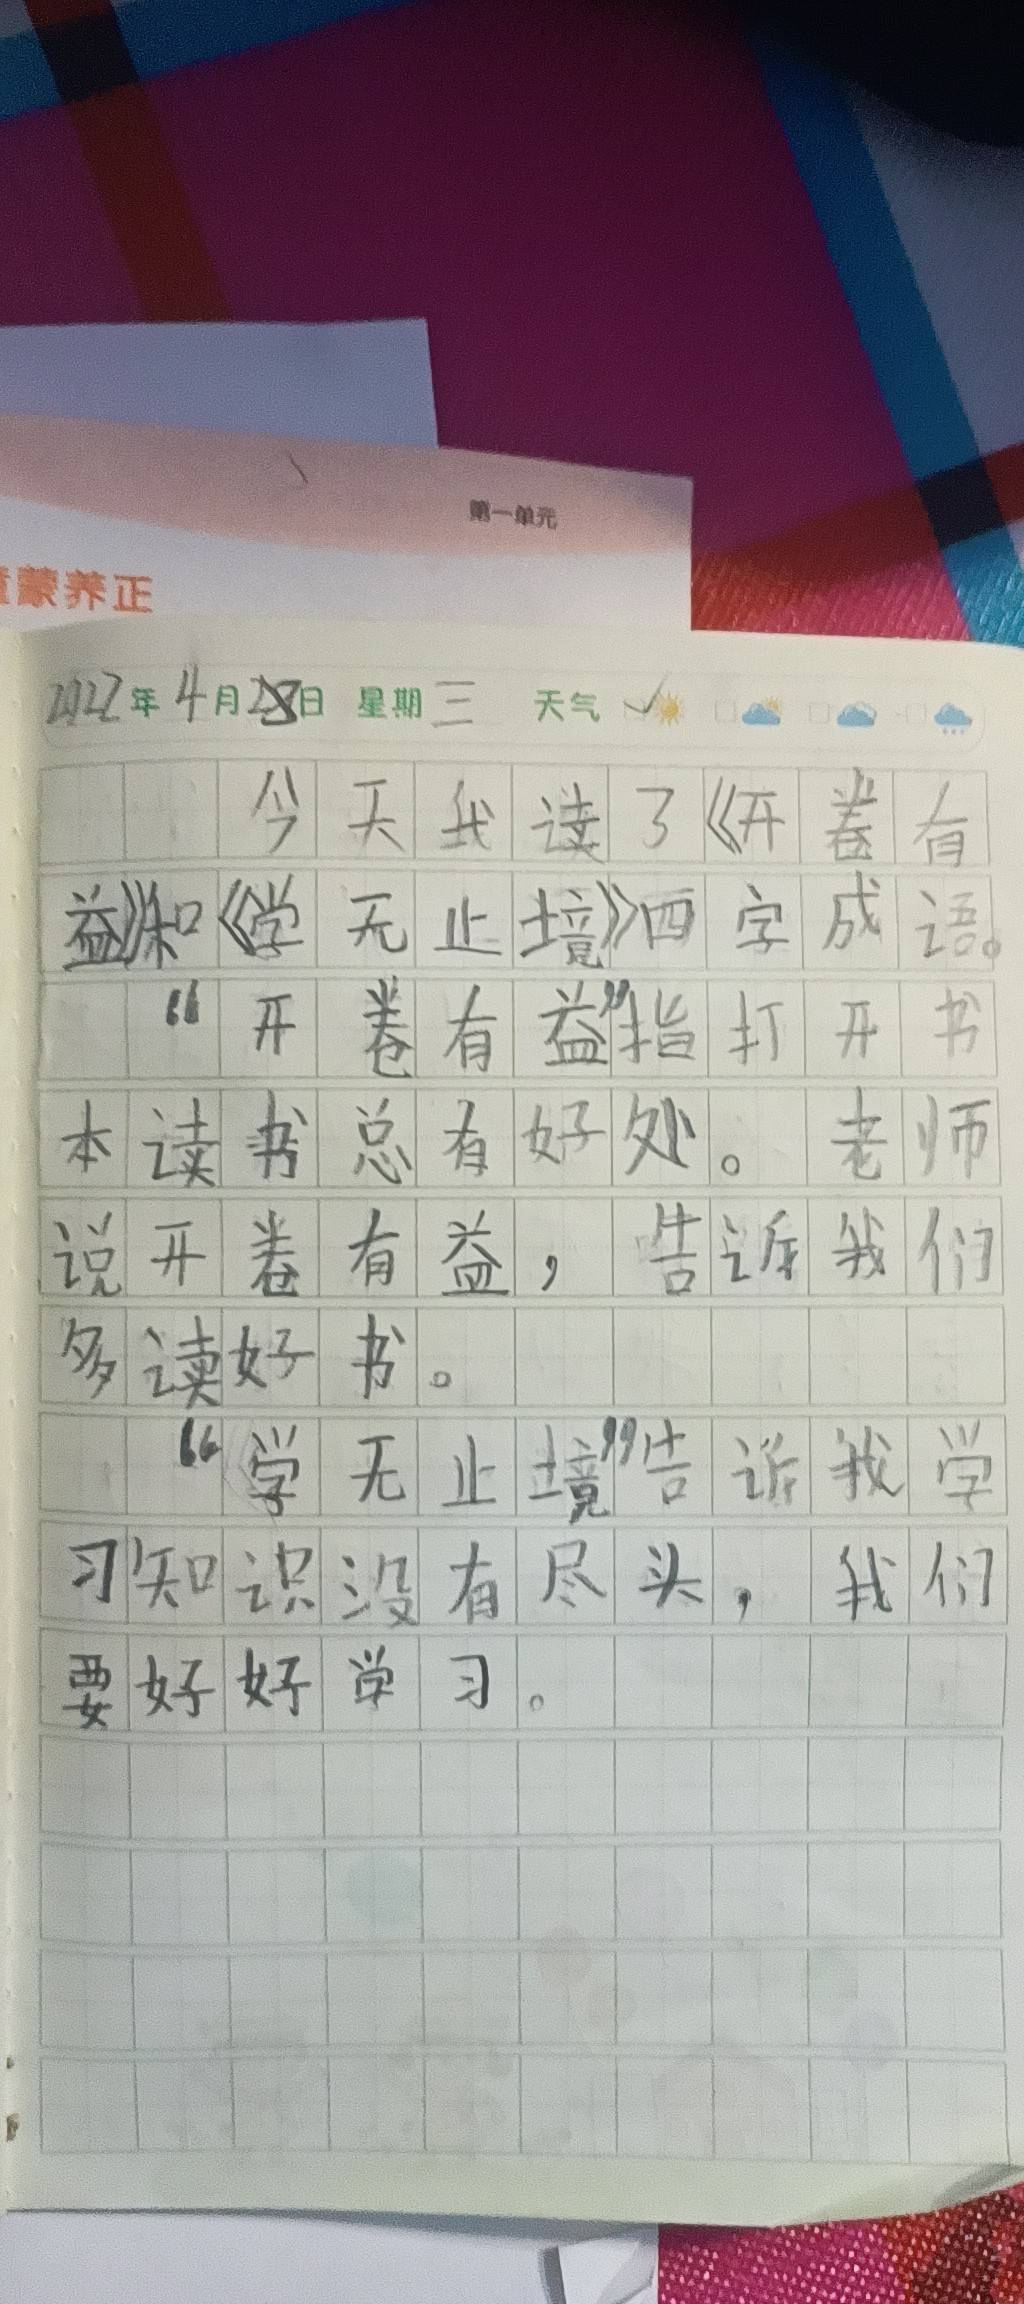 第一单元
蒙养正
2022年4月28日 星期三 天气
今天我读了《开卷有
益》和《学无止境》四字成语。
“开卷有益”指打开书
本读书总有好处。老师
说开卷有益，告诉我们
多读好书。
“学无止境”告诉我学
习知识没有尽头，我们
要好好学习。